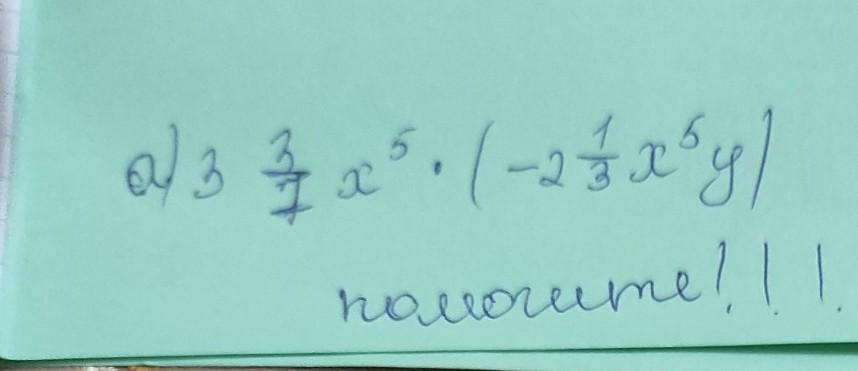 а) 3 3/7 x⁵ · (-2 1/3 x⁵y)
помогите!!!